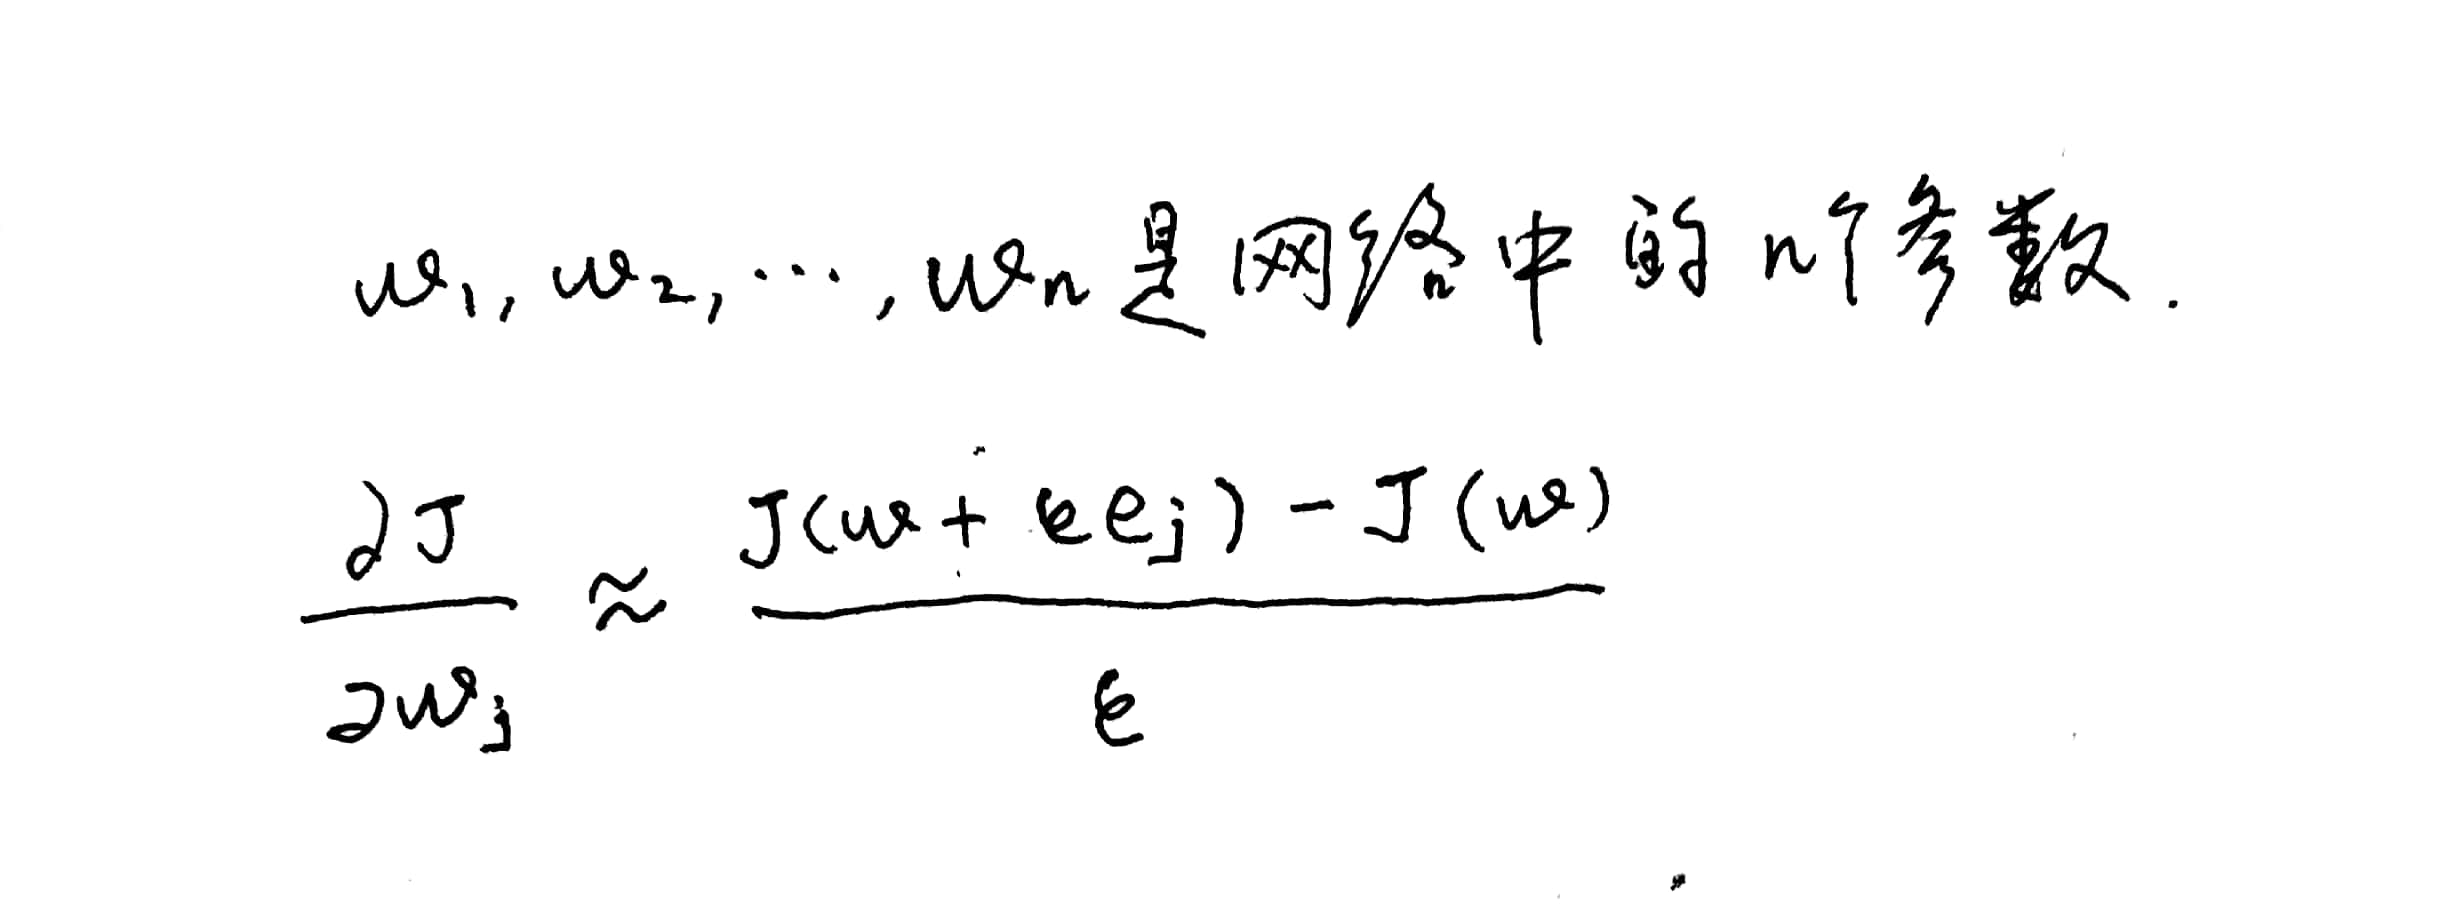 w₁, w₂, ⋯, wₙ是网络中的n个参数.
∂J/∂wⱼ ≈ (J(w + ϵeⱼ) − J(w))/ϵ